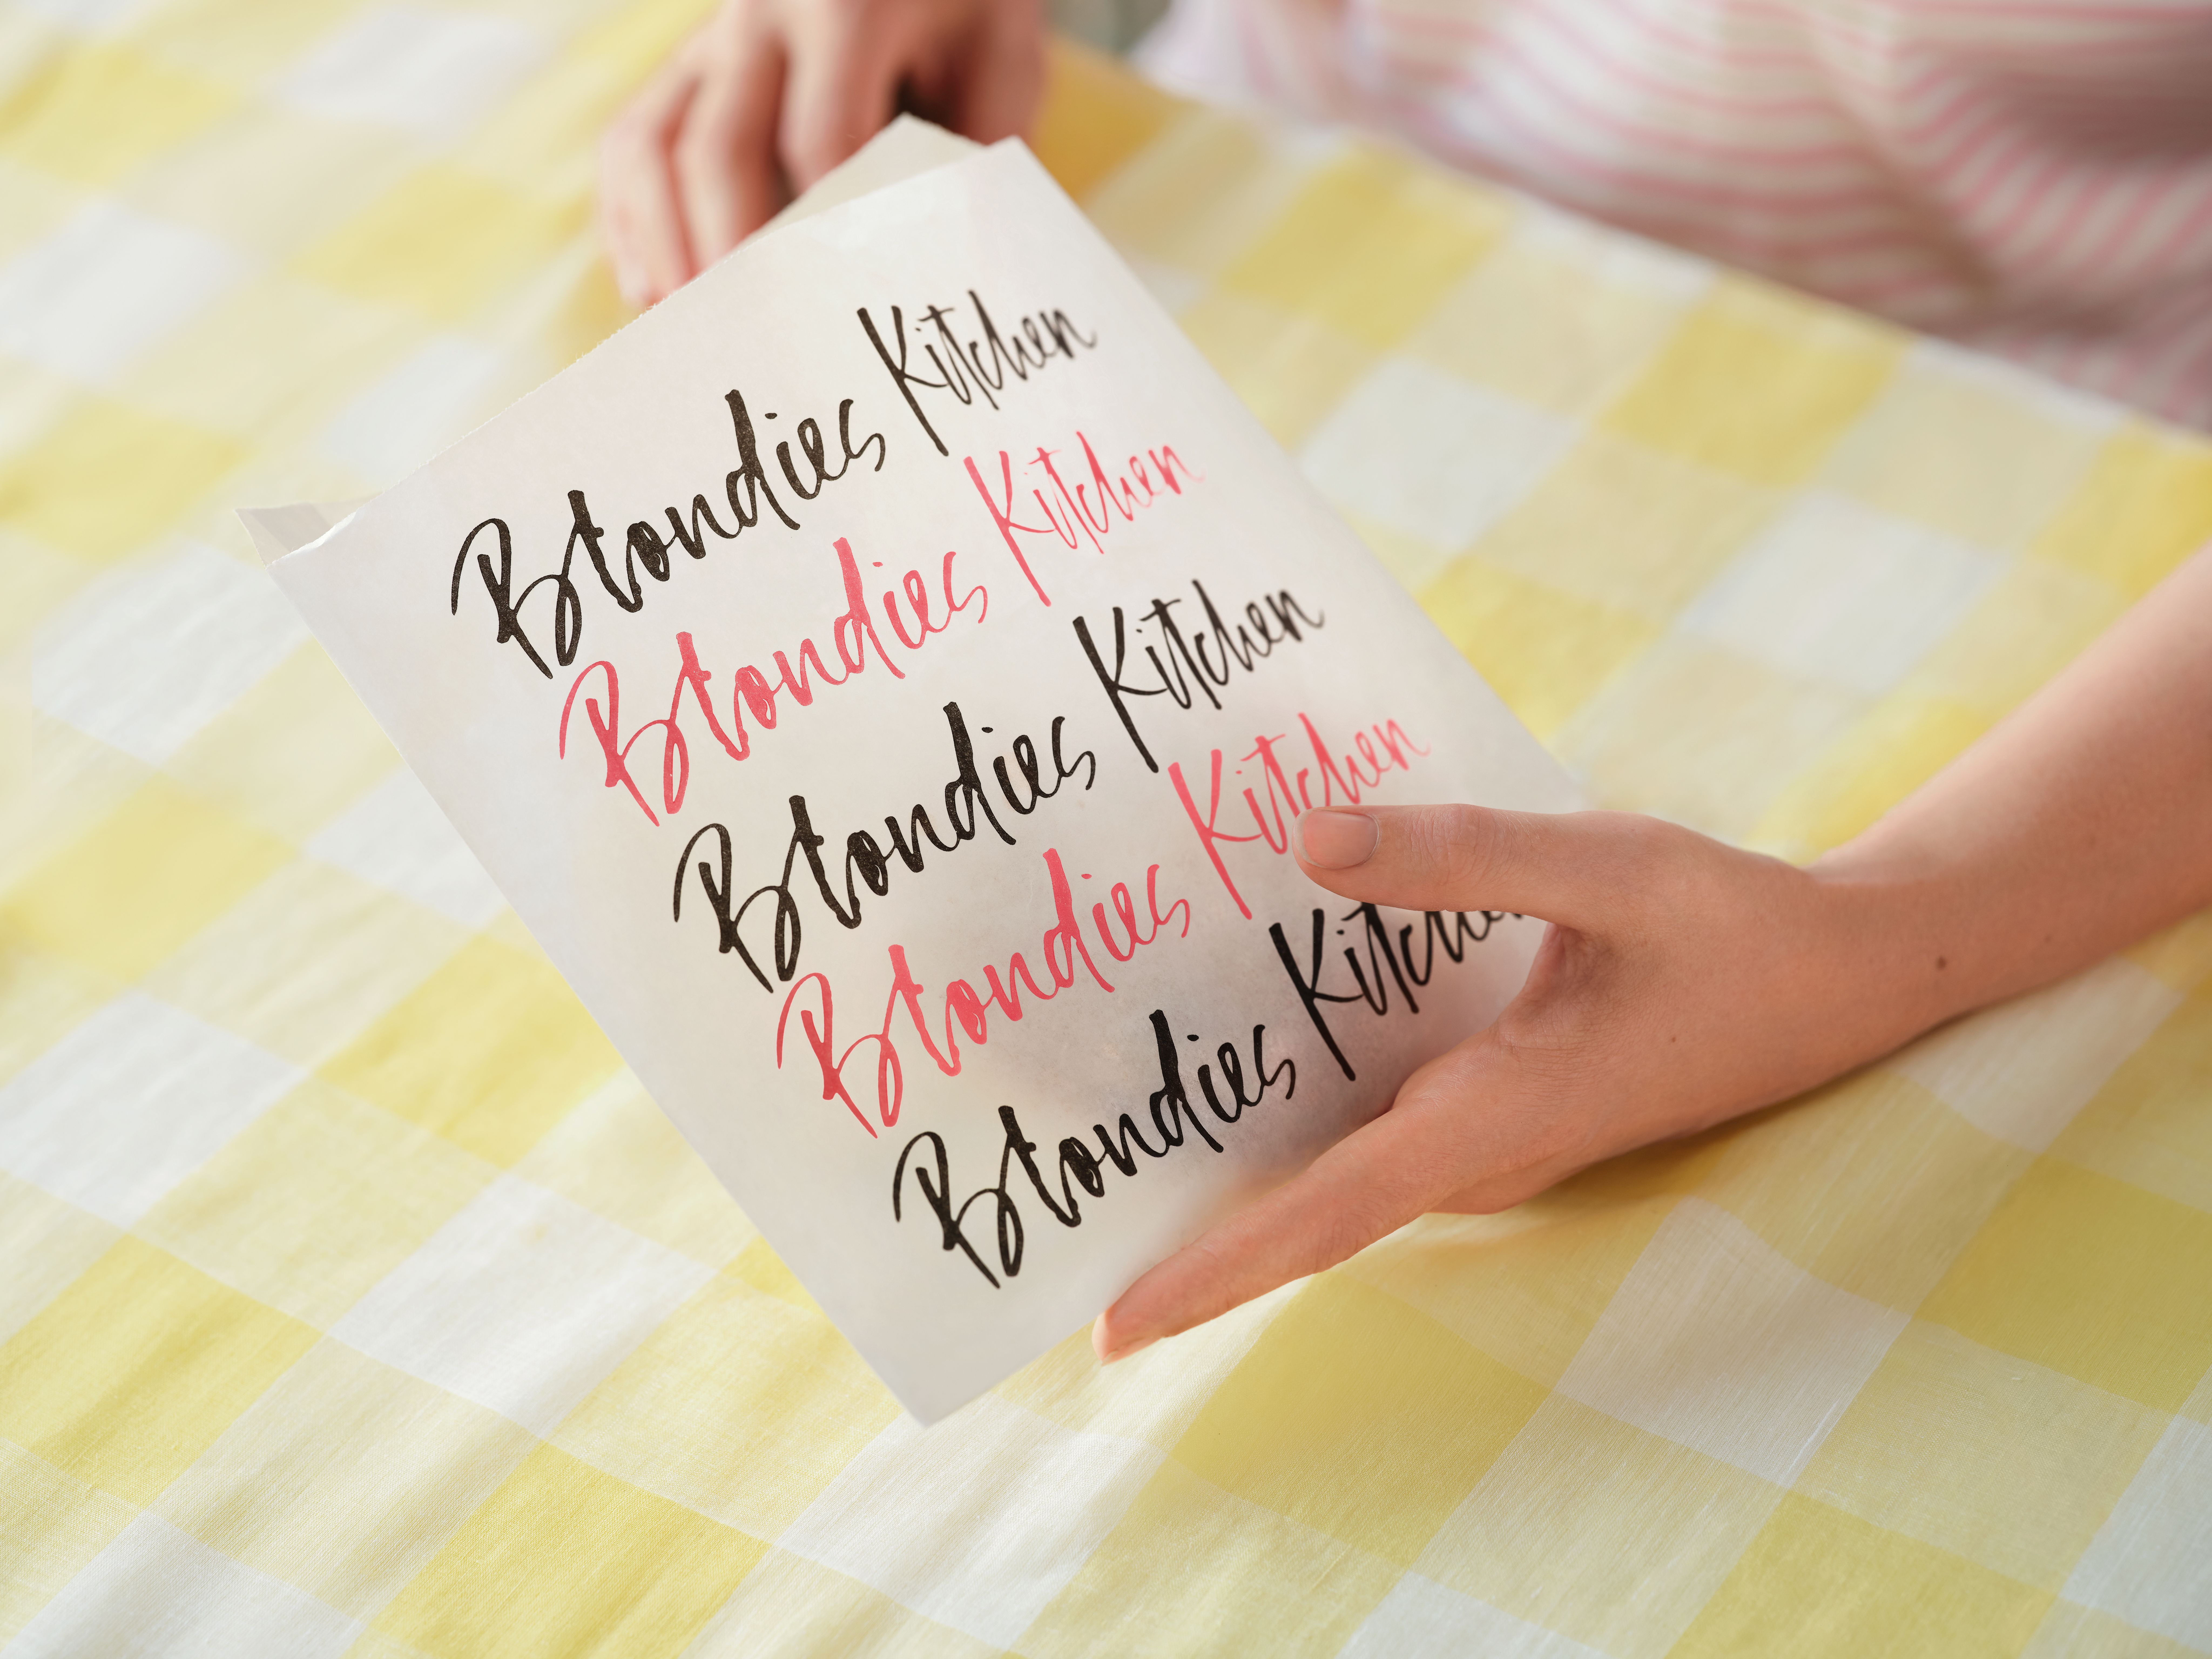 Blondies Kitchen
Blondies Kitchen
Blondies Kitchen
Blondies Kitchen
Blondies Kitchen